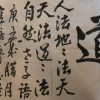 道
人法地々法天
天法道々法
自然老子語
庚